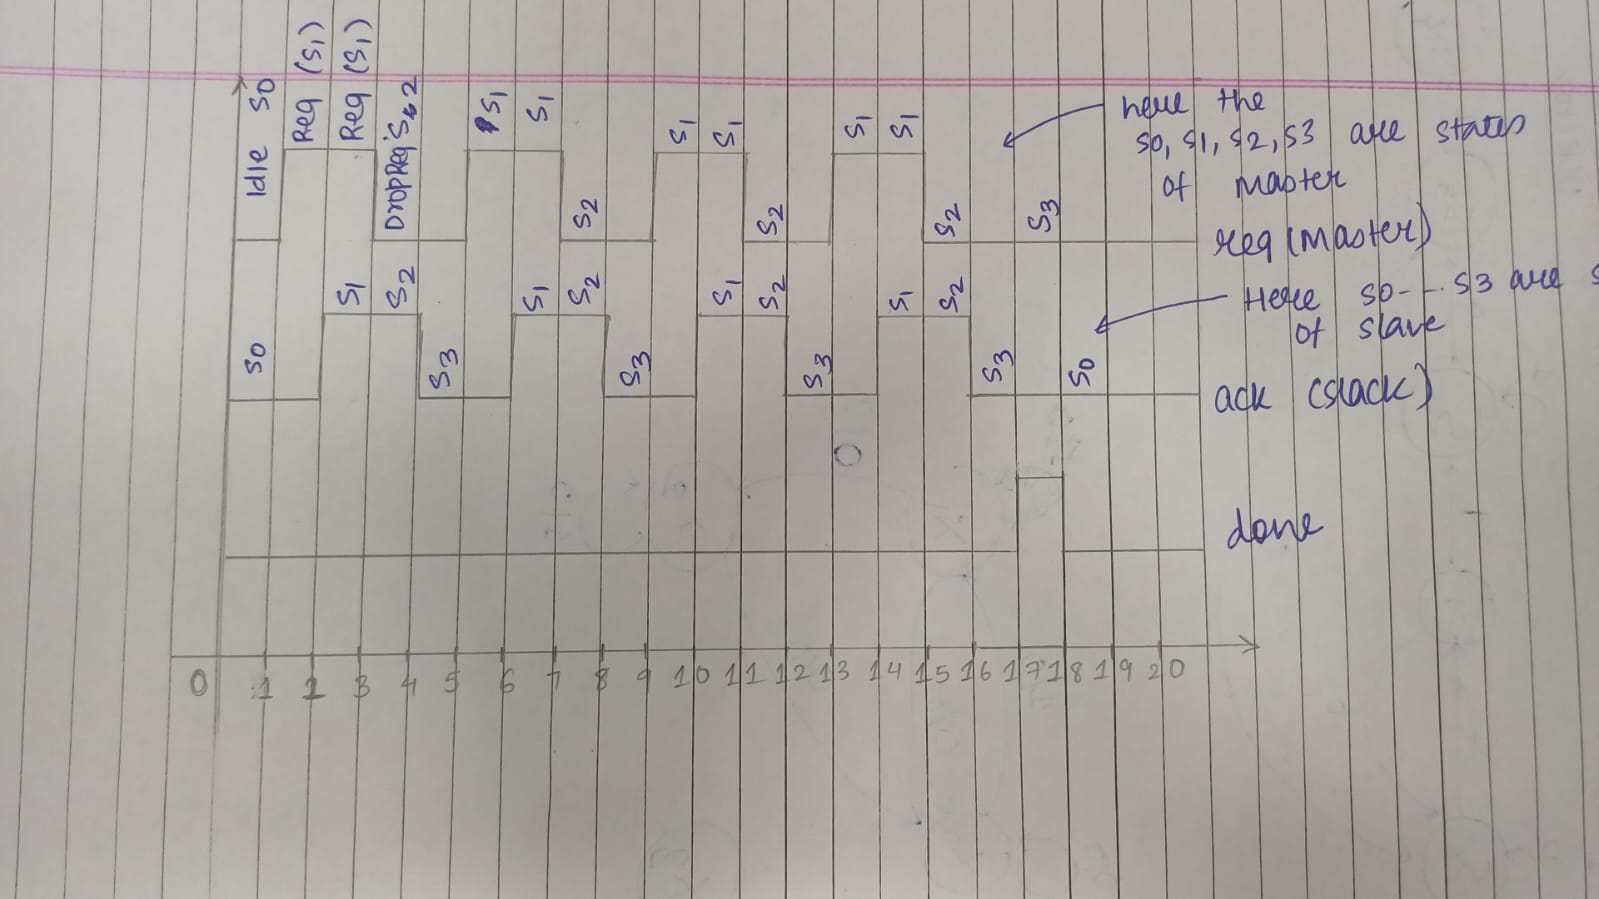 Idle S0
Req (S1)
Req (S1)
DropReq S2
S1
S1
S2
S1
S1
S2
S1
S1
S2
S3
here the
S0, S1, S2, S3 are states
of master
req (master)
S0
S1
S2
S3
S1
S2
S3
S1
S2
S3
S1
S2
S3
S0
Here S0-.S3 are s
of slave
ack (slack)
done
0 1 2 3 4 5 6 7 8 9 10 11 12 13 14 15 16 17 18 19 20